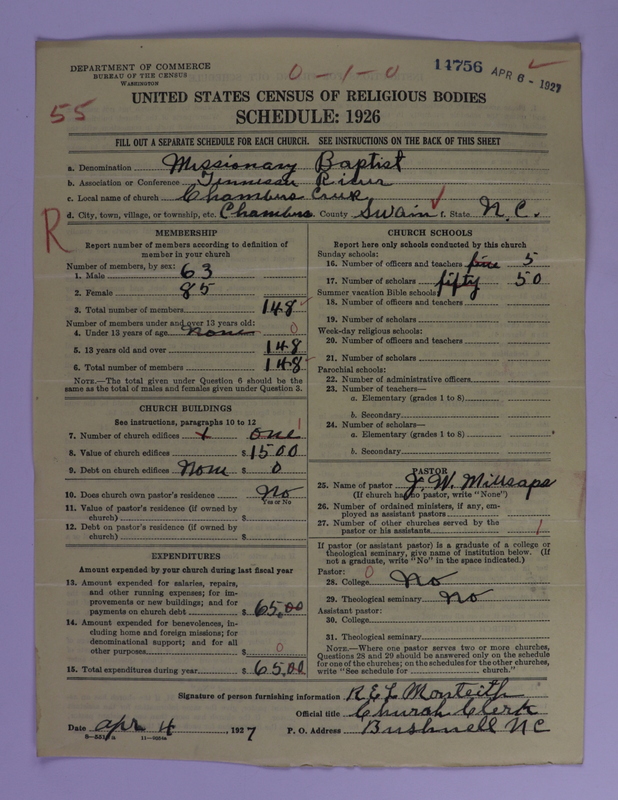 DEPARTMENT OF COMMERCE
BUREAU OF THE CENSUS
WASHINGTON
0-1-0
14756 APR 6 - 1927
55
UNITED STATES CENSUS OF RELIGIOUS BODIES
SCHEDULE: 1926
FILL OUT A SEPARATE SCHEDULE FOR EACH CHURCH. SEE INSTRUCTIONS ON THE BACK OF THIS SHEET
a. Denomination Missionary Baptist
b. Association or Conference Tennessee River
c. Local name of church Chambers Creek
d. City, town, village, or township, etc. Chambers County Swain f. State N.C.
R
MEMBERSHIP
Report number of members according to definition of
member in your church
Number of members, by sex:
1. Male 63
2. Female 85
3. Total number of members 148
Number of members under and over 13 years old:
4. Under 13 years of age none 0
5. 13 years old and over 148
6. Total number of members 148
NOTE.—The total given under Question 6 should be the
same as the total of males and females given under Question 3.
CHURCH BUILDINGS
See instructions, paragraphs 10 to 12
7. Number of church edifices one 1
8. Value of church edifices $1500
9. Debt on church edifices None $ 0
10. Does church own pastor's residence No
Yes or No
11. Value of pastor's residence (if owned by
church) $
12. Debt on pastor's residence (if owned by
church) $
EXPENDITURES
Amount expended by your church during last fiscal year
13. Amount expended for salaries, repairs,
and other running expenses; for im-
provements or new buildings; and for
payments on church debt $65.00
14. Amount expended for benevolences, in-
cluding home and foreign missions; for
denominational support; and for all
other purposes $ 0
15. Total expenditures during year $65.00
CHURCH SCHOOLS
Report here only schools conducted by this church
Sunday schools:
16. Number of officers and teachers five 5
17. Number of scholars fifty 50
Summer vacation Bible schools
18. Number of officers and teachers
19. Number of scholars
Week-day religious schools:
20. Number of officers and teachers
21. Number of scholars
Parochial schools:
22. Number of administrative officers
23. Number of teachers—
a. Elementary (grades 1 to 8)
b. Secondary
24. Number of scholars—
a. Elementary (grades 1 to 8)
b. Secondary
PASTOR
25. Name of pastor J. W. Millsaps
(If church has no pastor, write "None")
26. Number of ordained ministers, if any, em-
ployed as assistant pastors
27. Number of other churches served by the
pastor or his assistants 1
If pastor (or assistant pastor) is a graduate of a college or
theological seminary, give name of institution below. (If
not a graduate, write "No" in the space indicated.)
Pastor:
28. College 0 No
29. Theological seminary No
Assistant pastor:
30. College
31. Theological seminary
NOTE.—Where one pastor serves two or more churches,
Questions 28 and 29 should be answered only on the schedule
for one of the churches; on the schedules for the other churches,
write "See schedule for church."
Signature of person furnishing information R.E.L Monteith
Official title Church Clerk
Date Apr 4, 1927 P. O. Address Bushnell NC